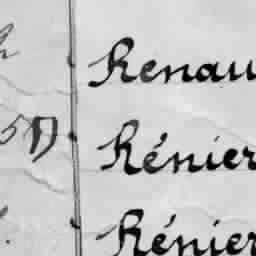 Renau
Rénier
Rénier